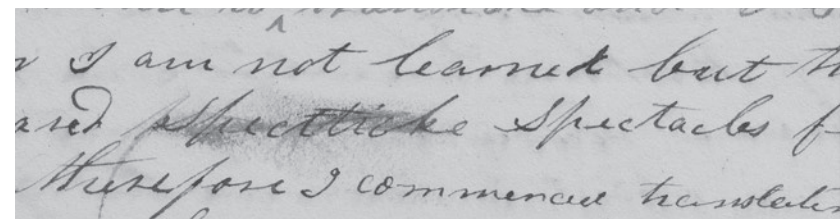 I am not learned but th
ared spectticke spectacles f
therefore I commenced translatin